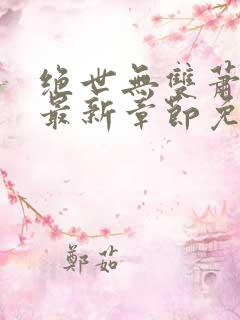 絕世無雙蕭
最新章節免
鄭茹